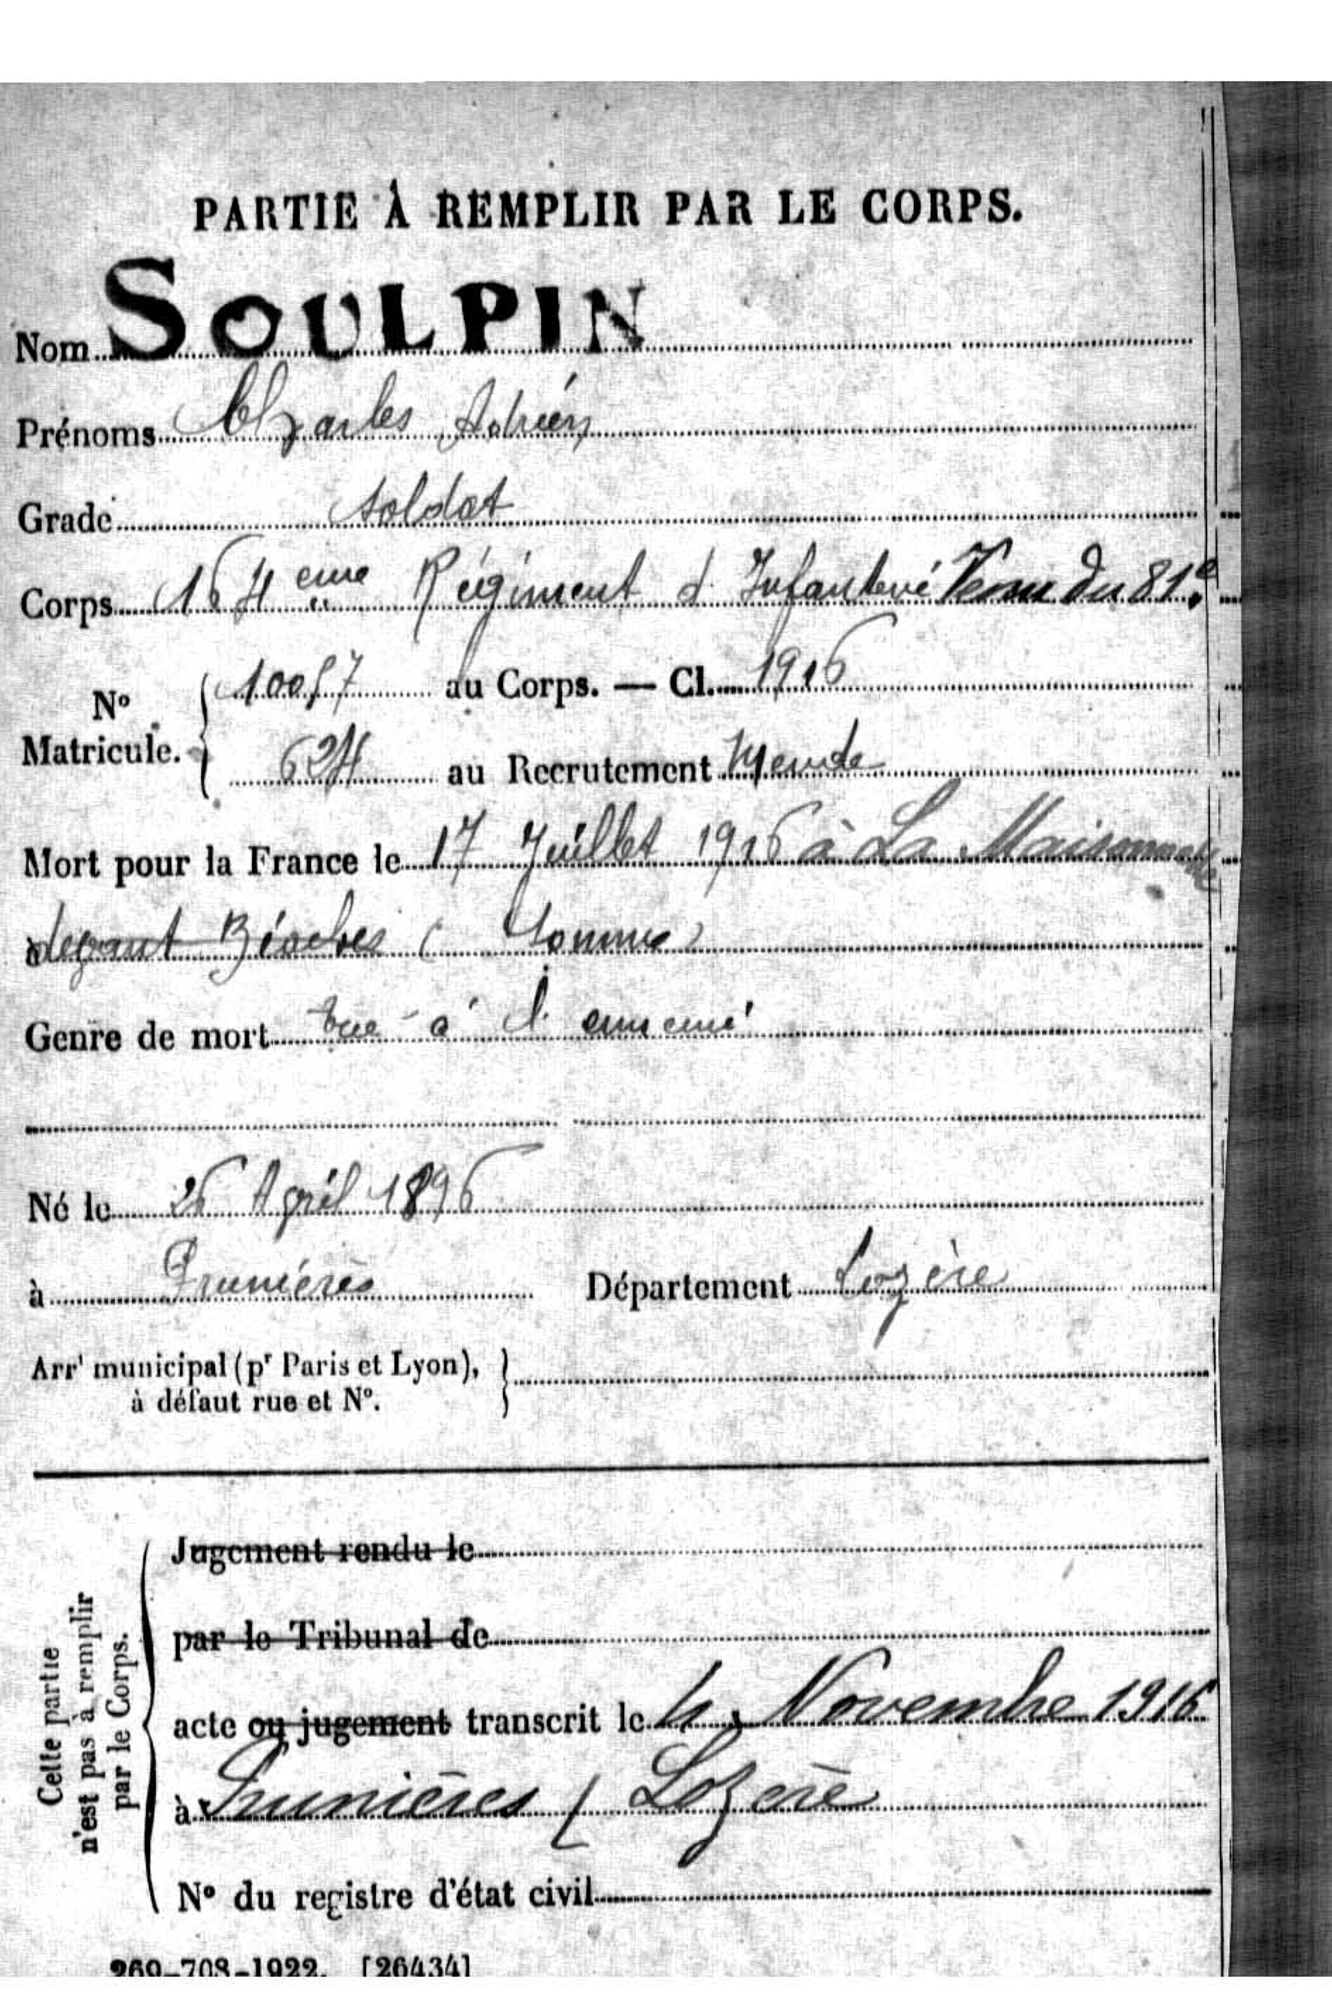 PARTIE À REMPLIR PAR LE CORPS.
Nom SOULPIN
Prénoms Charles Adrien
Grade soldat
Corps 164eme Régiment d'Infanterie Venu du 81e
No Matricule. { 10057 au Corps. — Cl. 1916
624 au Recrutement Mende
Mort pour la France le 17 Juillet 1916 à La Maisonnette
à devant Biaches (Somme)
Genre de mort tué à l'ennemi
Né le 26 Avril 1896
à Prunières Département Lozère
Arrt municipal (pr Paris et Lyon), }
à défaut rue et No.
Cette partie n'est pas à remplir par le Corps.
Jugement rendu le
par le Tribunal de
acte ou jugement transcrit le 4 Novembre 1916
à Prunières (Lozère
No du registre d'état civil
269-708-1922. [26434]